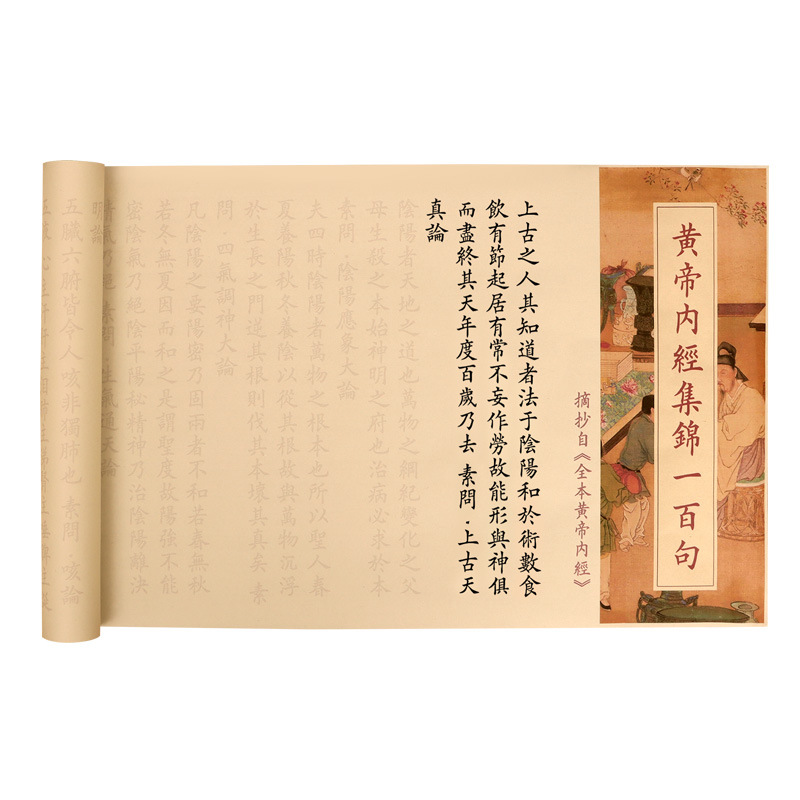 黄帝内經集錦一百句
摘抄自《全本黄帝内經》
上古之人其知道者法于陰陽和於術數食
飲有節起居有常不妄作勞故能形與神俱
而盡終其天年度百歲乃去 素問·上古天
真論
陰陽者天地之道也萬物之綱紀變化之父
母生殺之本始神明之府也治病必求於本
素問·陰陽應象大論
夫四時陰陽者萬物之根本也所以聖人春
夏養陽秋冬養陰以從其根故與萬物沉浮
於生長之門逆其根則伐其本壞其真矣 素
問·四氣調神大論
凡陰陽之要陽密乃固兩者不和若春無秋
若冬無夏因而和之是謂聖度故陽強不能
密陰氣乃絕陰平陽秘精神乃治陰陽離決
精氣乃絕 素問·生氣通天論
五藏六腑皆令人咳非獨肺也 素問·咳論